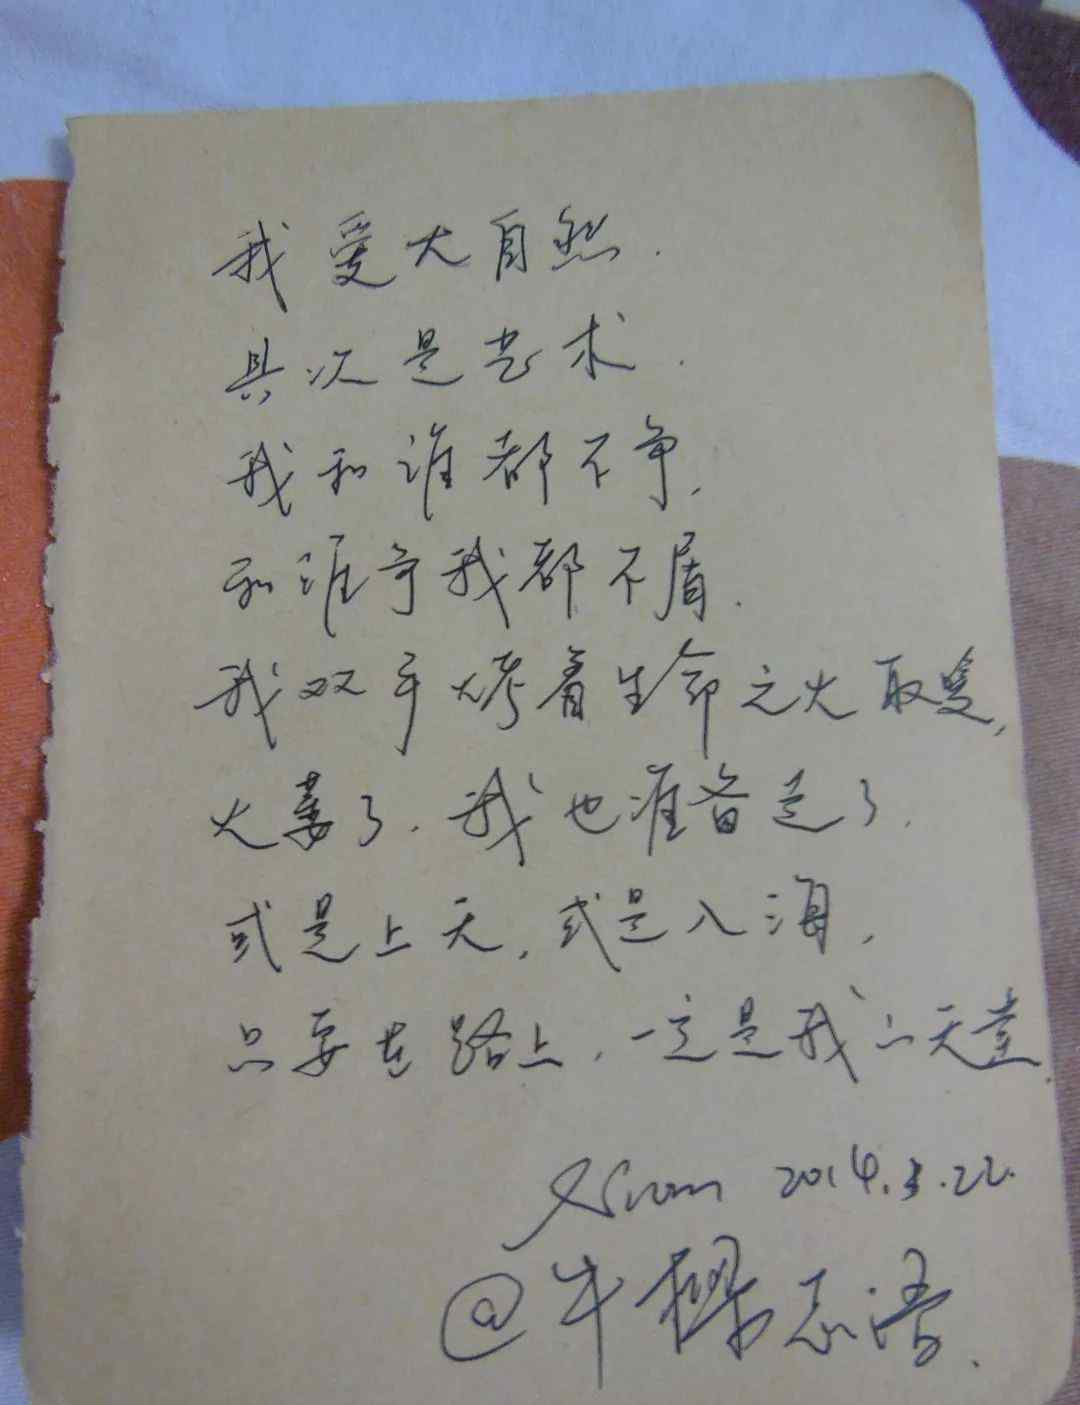 我爱大自然.
其次是艺术.
我和谁都不争,
和谁争我都不屑.
我双手烤着生命之火取暖,
火萎了.我也准备走了.
或是上天,或是入海,
只要在路上,一定是我的天堂.
2014.3.22.
@牛